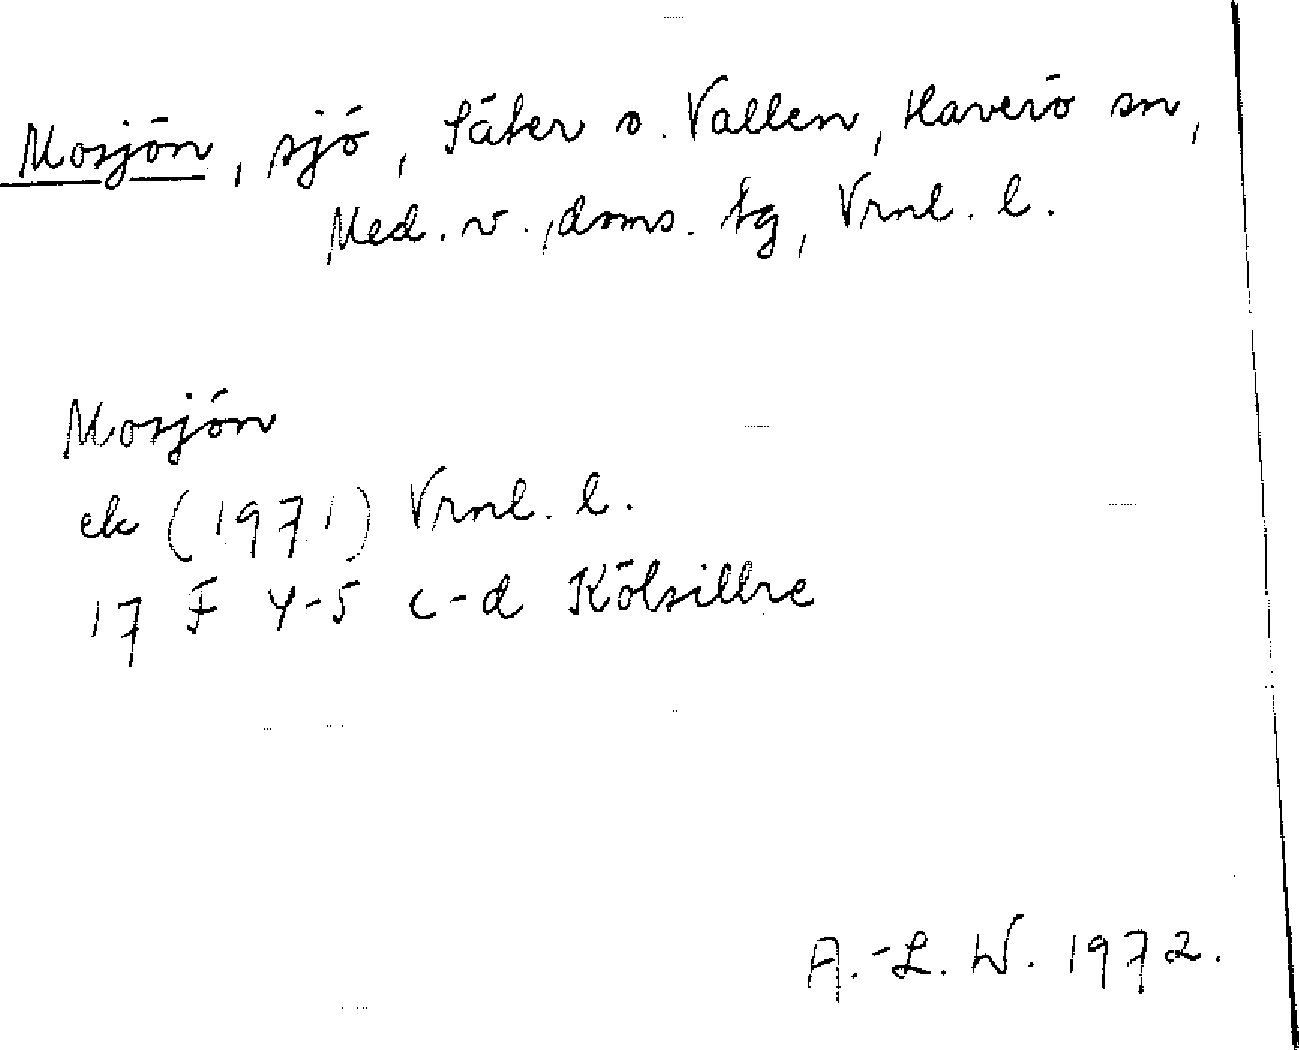 Mosjön, sjö, Säter o. Vallen, Haverö sn,
Med. v., doms. tg, Vrnl. l.
Mosjön
ek (1971) Vrnl. l.
17 F 4-5 c-d Kölsillre
A.-L. W. 1972.